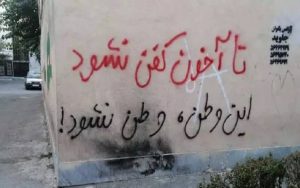 تا آخوند کفن نشود
این وطن، وطن نشود!